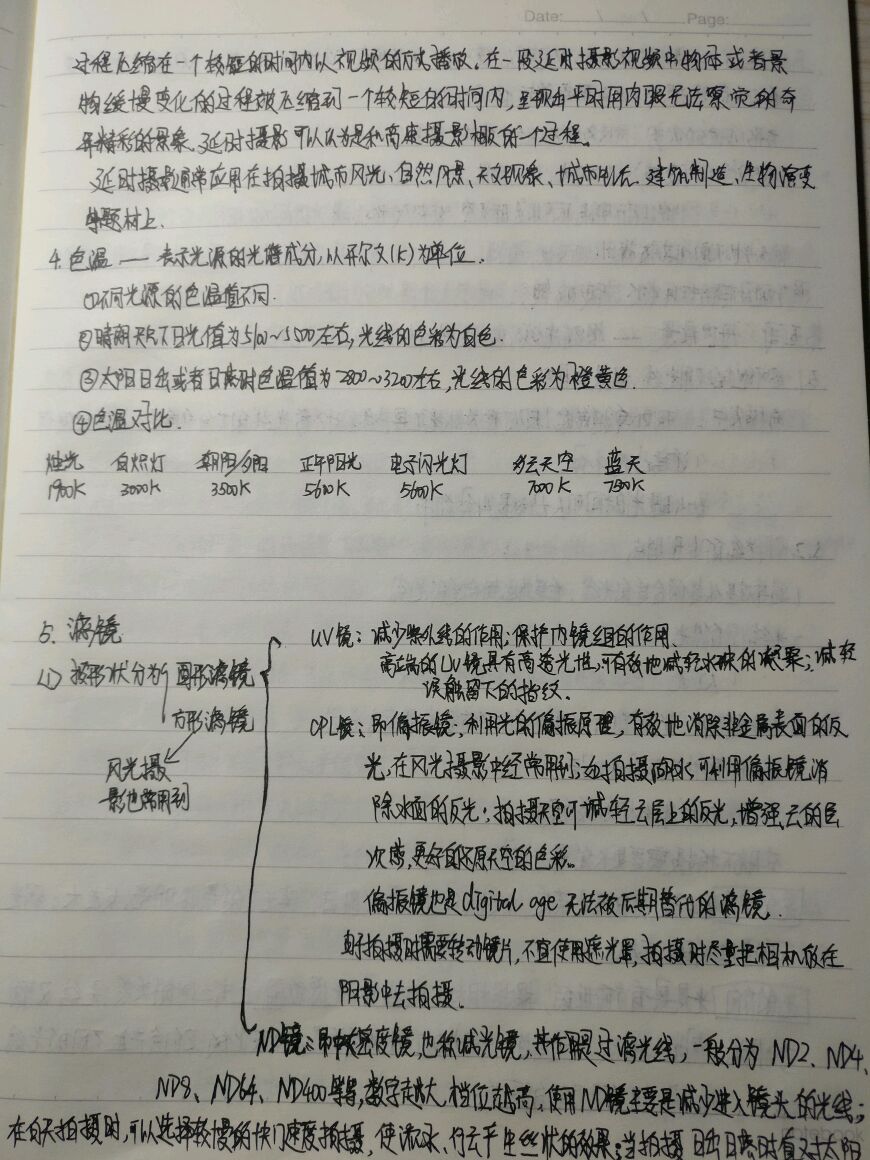 Date: / / Page:
过程压缩在一个较短的时间内以视频的方式播放。在一段延时摄影视频中物体或者景
物缓慢变化的过程被压缩到一个较短的时间内,呈现出平时用肉眼无法察觉的奇
异精彩的景象。延时摄影可以认为是和高速摄影相反的一个过程。
延时摄影通常应用在拍摄城市风光、自然风景、天文现象、城市生活、建筑制造、生物演变
等题材上.
4. 色温 —— 表示光源的光谱成分,以开尔文(K)为单位.
①不同光源的色温值不同.
②晴朗天气下日光值为5100~5500左右,光线的色彩为白色.
③太阳日出或者日落时色温值为2800~3200左右,光线的色彩为橙黄色.
④色温对比.
烛光 白炽灯 朝阳夕阳 正午阳光 电子闪光灯 多云天空 蓝天
1900K 3000K 3500K 5600K 5600K 7000K 7500K
5. 滤镜
(1) 按形状分为 圆形滤镜
方形滤镜
风光摄
影也常用到
UV镜:减少紫外线的作用;保护内镜组的作用.
高端的UV镜具有高透光性,可有效地减轻水珠的凝聚;减轻
误触留下的指纹.
CPL镜:即偏振镜;利用光的偏振原理,有效地消除非金属表面的反
光,在风光摄影中经常用到;如拍摄湖水可利用偏振镜消
除水面的反光;拍摄天空可减轻云层上的反光,增强云的层
次感,更好的还原天空的色彩.
偏振镜也是digital age 无法被后期替代的滤镜.
由于拍摄时需要转动镜片,不宜使用遮光罩,拍摄时尽量把相机放在
阴影中去拍摄.
ND镜:即中灰密度镜,也称减光镜,其作用是过滤光线,一般分为 ND2、ND4、
ND8、ND64、ND400等,数字越大,档位越高,使用ND镜主要是减少进入镜头的光线;
在白天拍摄时,可以选择较慢的快门速度拍摄,使流水、行云产生丝状的效果;当拍摄日出日落时直对太阳